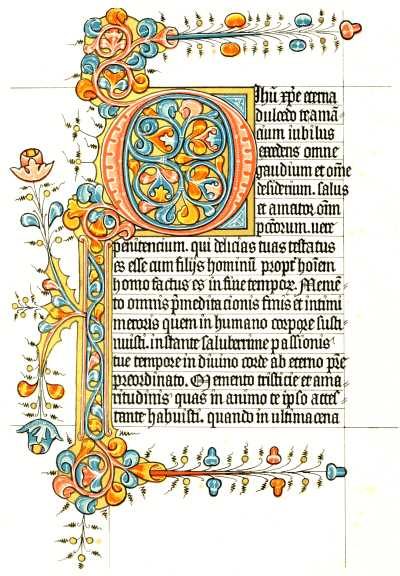 O Ihū xp̄e eterna
dulcedo te amā
cium iubilus
excedens omne
gaudium et om̄e
desiderium. salus
et amator om̄
pc̄corum. uere
penitencium. qui delicias tuas testatus
es esse cum filijs hominū propt̄ hoīem
homo factus es in fine tempor. Memē
to omnis p̄meditacionis finis et intimi
meroris quem in humano corpore susti
nuisti. instante saluberime passionis
tue tempore in diuino corde ab eterno p̄re
preordinato. Memento tristicie et ama
ritudinis quas in animo te ipso attes
tante habuisti. quando in ultima cena